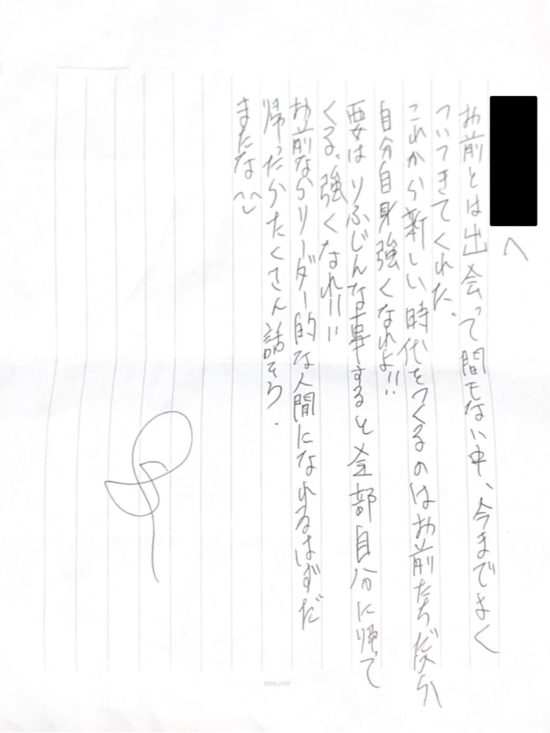 へ
お前とは出会って間もない中、今までよく
ついてきてくれた。
これから新しい時代をつくるのはお前たちだから
自分自身強くなれよ!!
要はりふじんな事すると全部自分に帰って
くる、強くなれ!!!
お前ならリーダー的な人間になれるはずだ
帰ったらたくさん話そう.
またな^^
KOKUYO